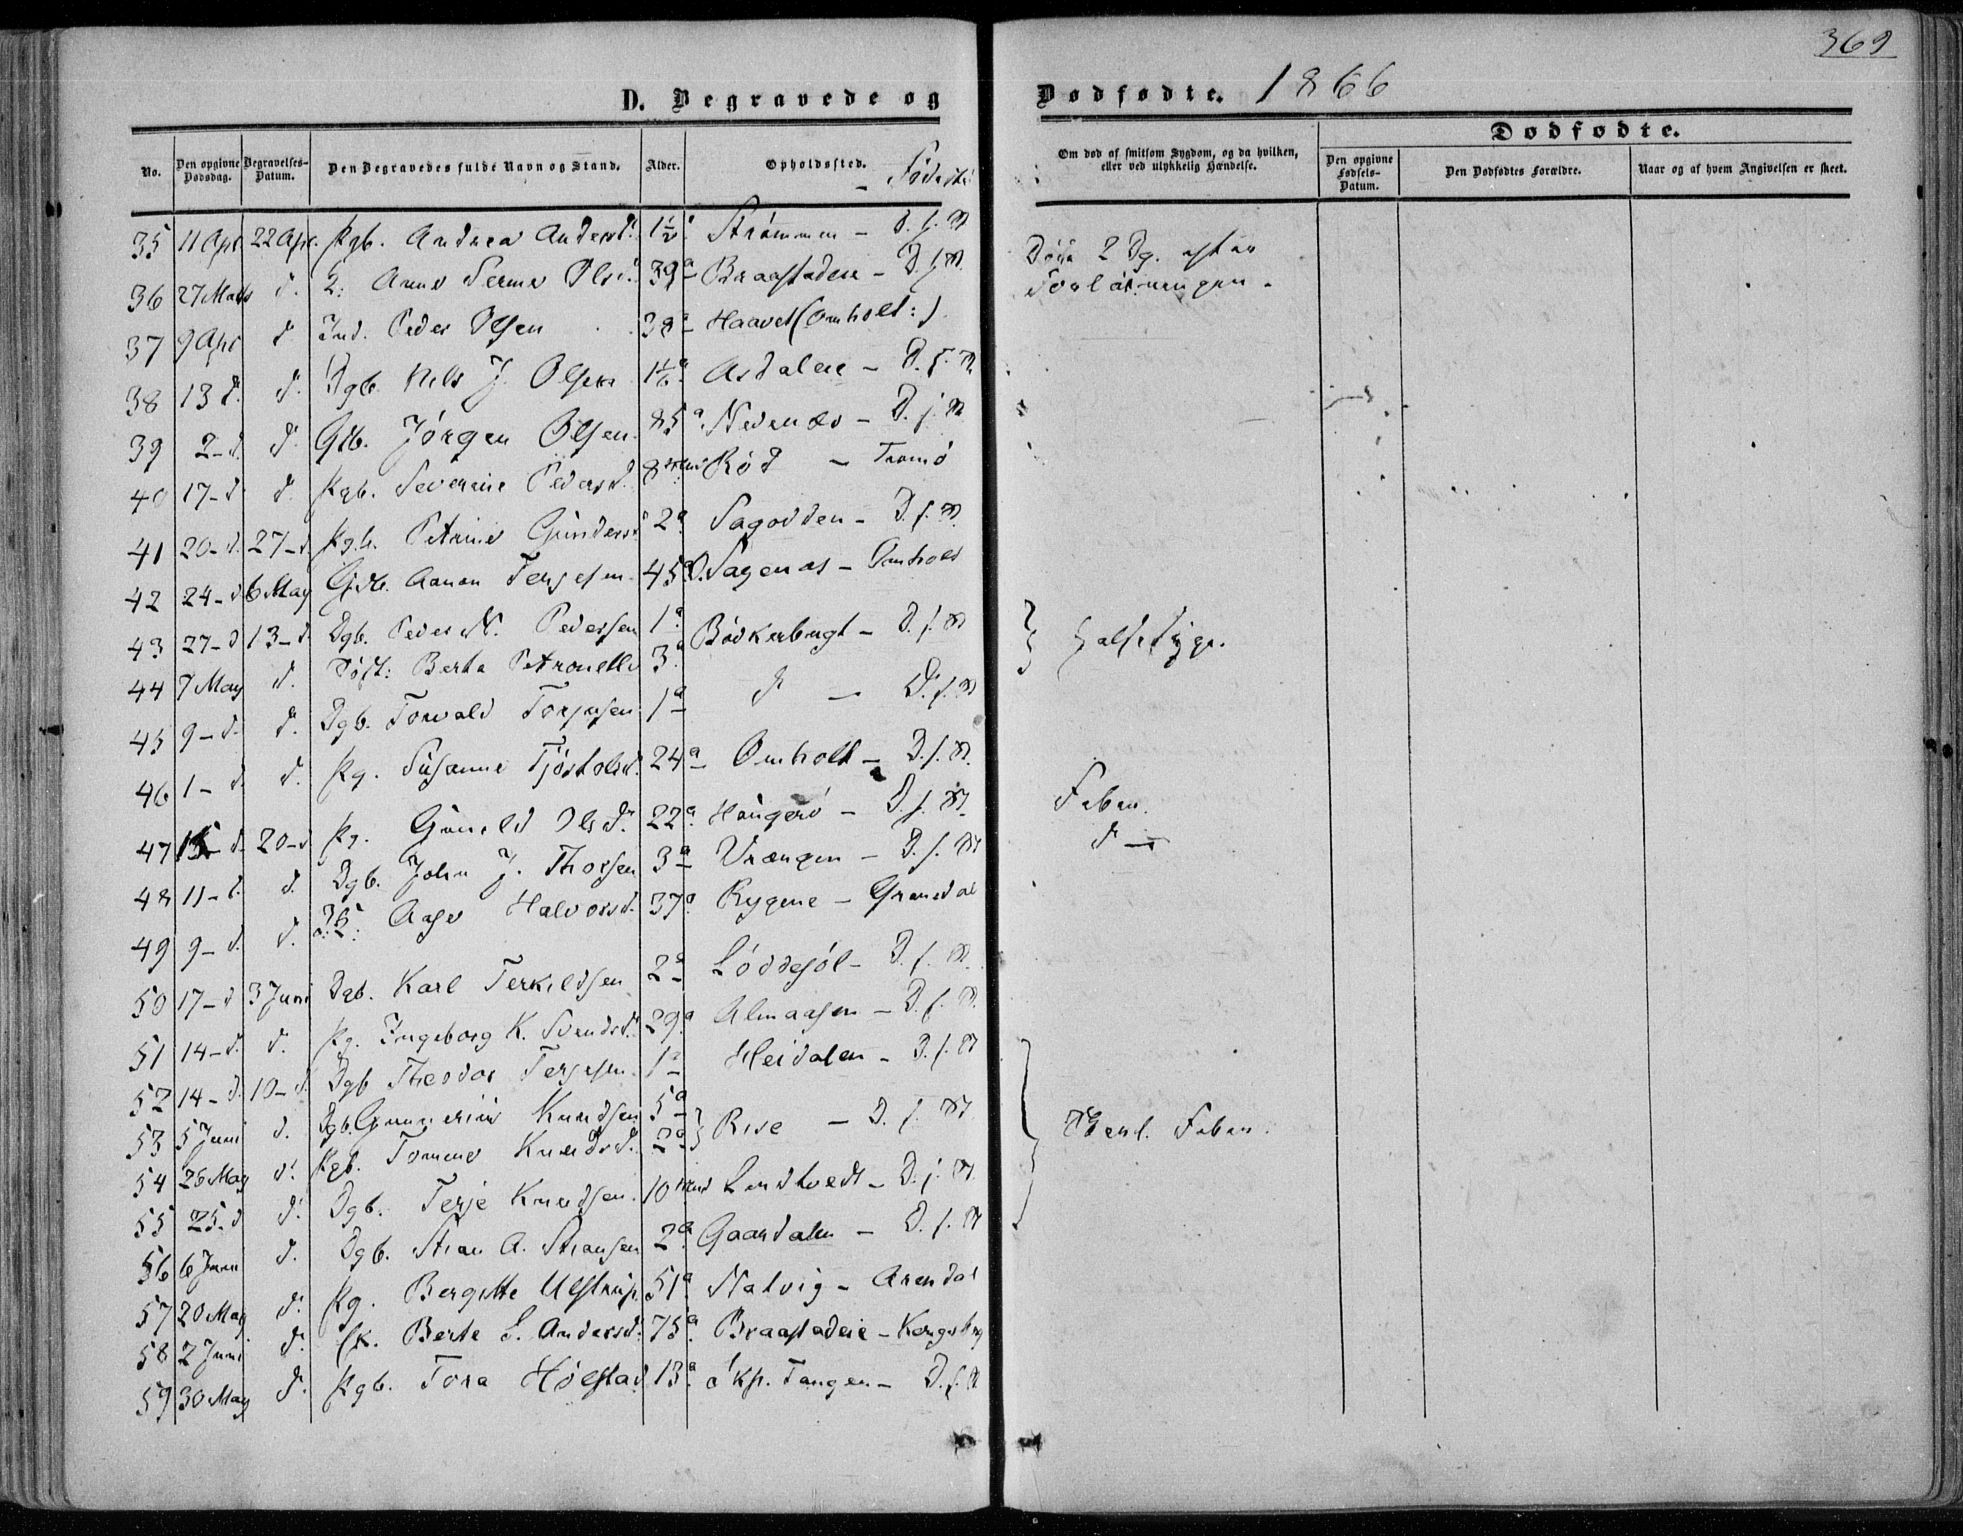 369
D. Begravede og Dødfødte. 1866
No.
Den opgivne Dødsdag.
Begravelses-Datum.
Den Begravedes fulde Navn og Stand.
Alder.
Opholdssted. - Fødested
Om død af smitsom Sygdom, og da hvilken, eller ved ulykkelig Hændelse.
Dødfødte.
Den opgivne Fødsels-Datum.
Den Dødfødtes Forældre.
Naar og af hvem Angivelsen er skeet.
35 11 Apr 22 Apr. Pgb. Andrea Andersd. 1½ Strømmen - D. f. St
36 27 Marts d. Anne Serine Olsd. 39a Braastadeie - D. f. St. Døde 2 Dg. efter Forløsningen.
37 9 Apr d Ind. Peder Olsen 38a Haavet (Omholt:)
38 13 d. d. Dgb. Nels J. Olsen Asdaleie - D. f. St
39 2 - d. d. Gdb. Jørgen Olsen. 85a Nedenæs - D. f. St
40 17 - d. d. Pgb. Severine Pedersd. Rød - Tromø
41 20 - d. 27 - d. Pgb. Petrine Gundersd 2a Sagodden - D. f. St.
42 24 - d. 6 May Gdb. Aanon Terjesen. 45a Sagenæs - Omholt
43 27 - d 13 - d. Dgb. Peder N. Pedersen 1a Bødkerbugt - D. f. St Halsesyge.
44 7 May d. Berta Petronelle 3a
45 9 - d. d. Dgb. Torvald Torjusen 1a d - D. f. St
46 1 - d. d. Pg. Susanne Tjøstolsd. 24a Omholt - D. f. St.
47 15 - d. 20 - d Pg. Gunild Olsd. 22a Haugerø - D. f. St. Feber.
48 11 - d. d. Dgb. John J. Thorsen 3a Vrængen - D. f. St d -
49 9 - d. d. Aase Halvorsd. 37a Rygene -
50 17 - d 3 Juni Dgb. Karl Terkildsen 2a Løddesøl - D. f. St.
51 14 - d. d. Pg. Ingeborg K. Svendsd. 29a Almaasen - D. f. St.
52 14 - d. 10 - d. Dgb Theodor Terjesen. 1a Heidalen - D. f. St
53 5 Juni d. Dgb. Gunnerius Knudsen 5a Rise - D. f. St
54 26 May d. Pgb. Tomine Knudsd. 2a
55 25 - d d. Dgb. Terje Knudsen. 10 Lindtvedt - D. f. St
56 6 Juni d. Dgb. Stian A. Stiansen 2a Gaardalen - D. f. St
57 20 May d. Pg. Bergitte Ulstrup 51a Natvig - Arendal
58 2 Juni d. Berte L. Andersd. 75a Braastadeie - Kongsberg
59 30 May d. Pgb. Tora Hølstad 13a Tangen - D. f. St
Feber.